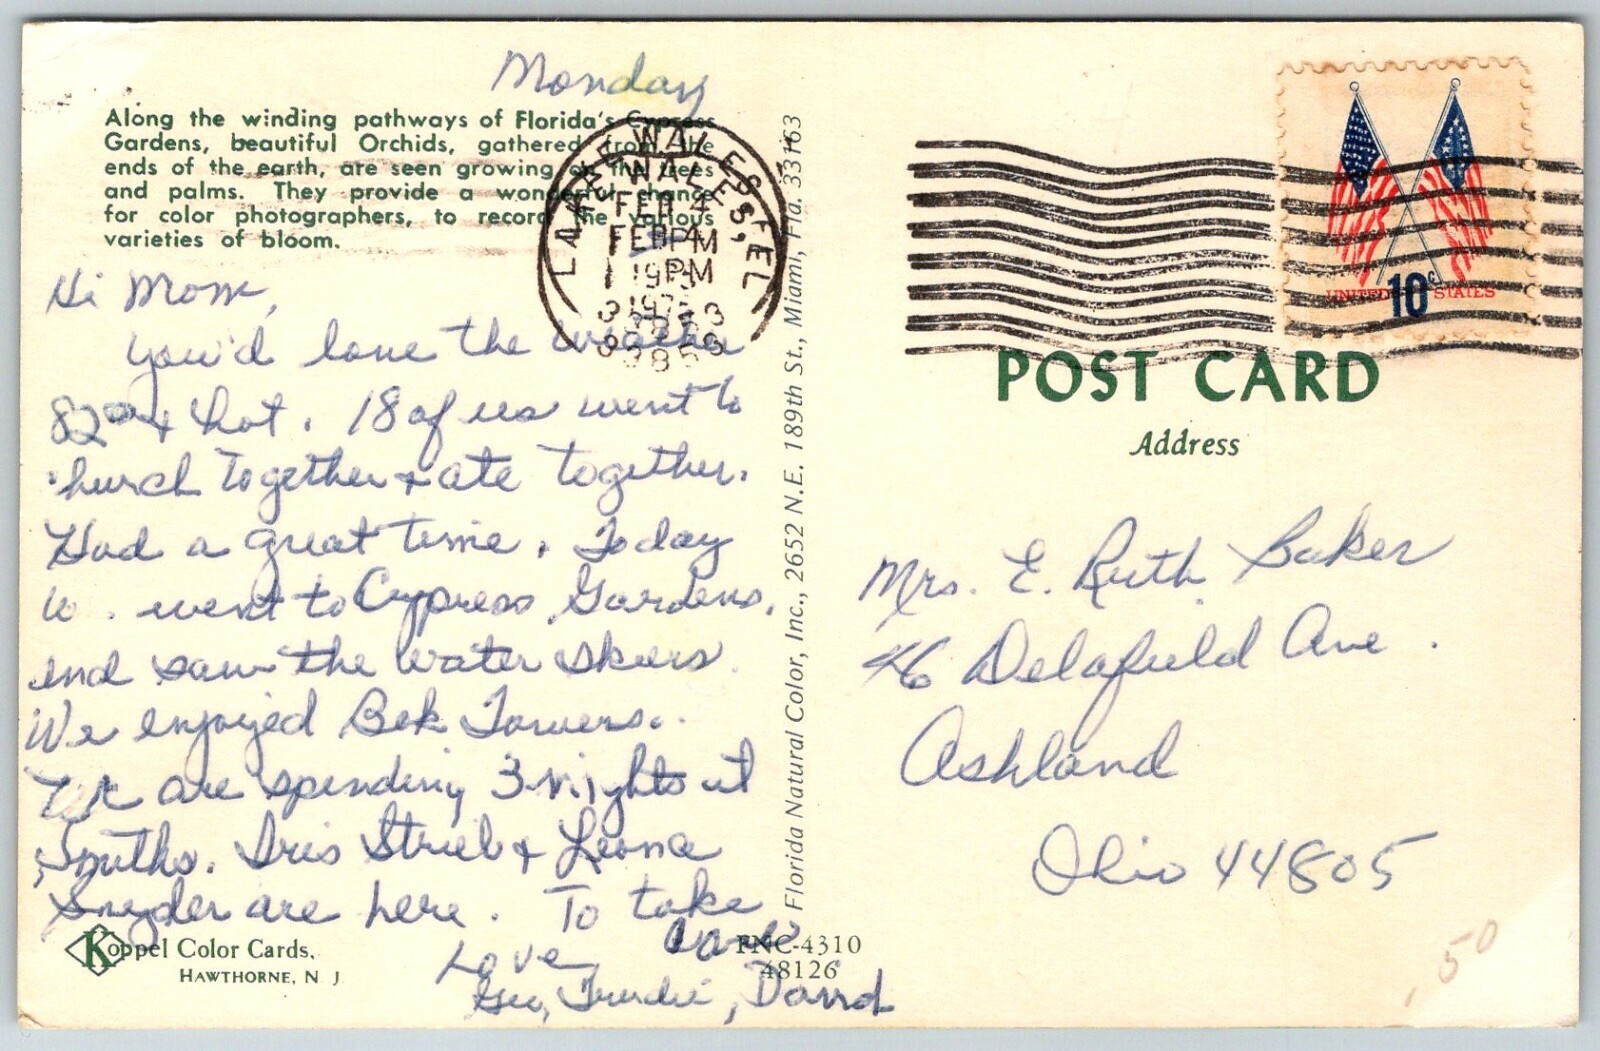 Monday
Along the winding pathways of Florida's Cypress
Gardens, beautiful Orchids, gathered from the
ends of the earth, are seen growing on the trees
and palms. They provide a wonderful chance
for color photographers, to record the various
varieties of bloom.
Hi Mom,
You'd love the weather
82° & hot. 18 of us went to
church together & ate together.
Had a great time. Today
went to Cypress Gardens,
and saw the water skiers.
We enjoyed Bok Towers.
We are spending 3 nights at
Smiths. Iris Strieb & Leona
Snyder are here. To take
Love,
Geo, Trudie, David
Koppel Color Cards,
HAWTHORNE, N J
FNC-4310
48126
Florida Natural Color, Inc., 2652 N.E. 189th St., Miami, Fla. 33163
LAKE WALES, FL
FEB 4
PM
33853
UNITED STATES
10c
POST CARD
Address
Mrs. E. Ruth Baker
46 Delafield Ave.
Ashland
Ohio 44805
.50